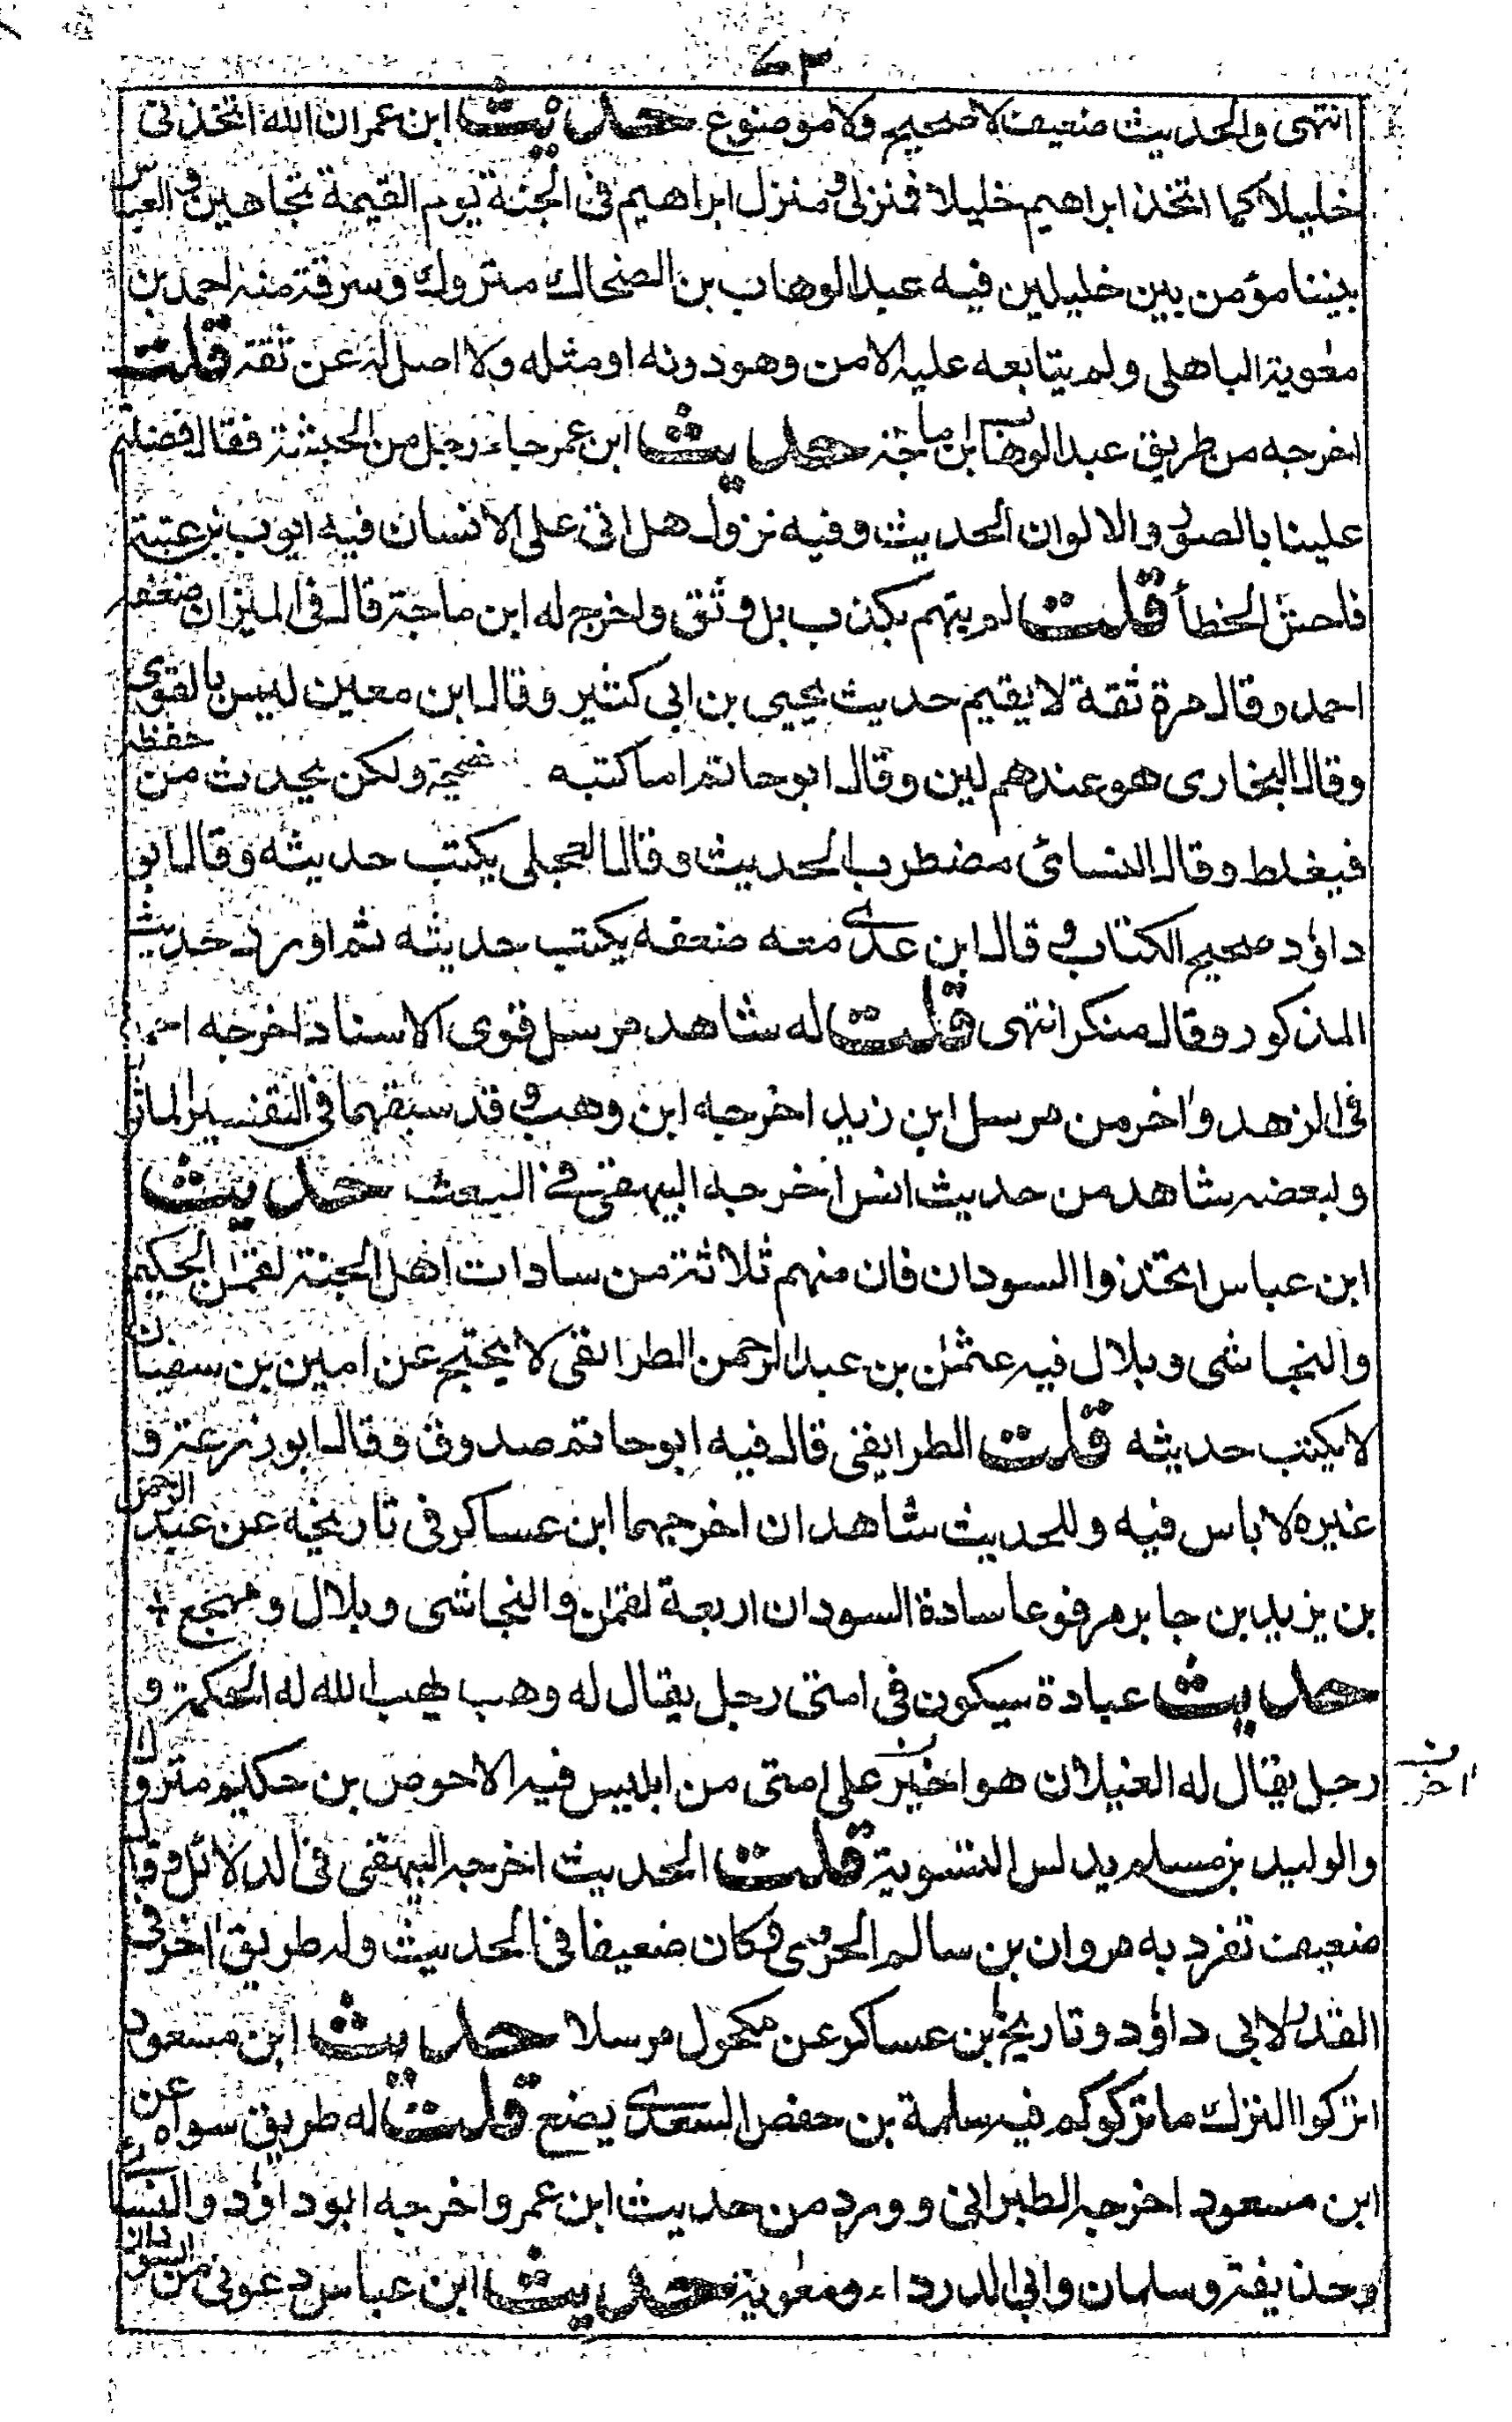 ٧٣
انتهى والحديث ضعيف لا صحيح ولا موضوع حديث ابن عمر ان الله اتخذنى
خليلا كما اتخذ ابراهيم خليلا فمنزلى ومنزل ابراهيم فى الجنة يوم القيمة تجاهين والعباس
بيننا مؤمن بين خليلين فيه عبد الوهاب بن الضحاك متروك وسرقة منه احمد بن
معوية الباهلى ولم يتابعه عليه الا من وهو دونه او مثله ولا اصل له عن ثقة قلت
اخرجه من طريق عبد الوهاب ابن ماجة حديث ابن عمر جاء رجل من الحبشة فقال فضلتم
علينا بالصور والالوان الحديث وفيه نزول هل اتى على الانسان فيه ايوب بن عتبة
فاحش الخطأ قلت لم يتهم بكذب بل وثق واخرج له ابن ماجة قال فى الميزان ضعفه
احمد وقال مرة ثقة لا يقيم حديث يحيى بن ابى كثير وقال ابن معين ليس بالقوى
وقال البخارى هو عندهم لين وقال ابو حاتم اما كتبه صحيحة ولكن يحدث من حفظه
فيغلط وقال النسائى مضطرب الحديث وقال العجلى يكتب حديثه وقال ابو
داؤد صحيح الكتاب وقال ابن عدى معه ضعفه يكتب حديثه ثم اورد حديث
المذكور وقال منكر انتهى قلت له شاهد مرسل قوى الاسناد اخرجه احمد
فى الزهد واخر من مرسل ابن زيد اخرجه ابن وهب وقد سبقهما فى التفسير الماثور
ولبعضه شاهد من حديث انس اخرجه البيهقى فى البعث حديث
ابن عباس اتخذوا السودان فان منهم ثلاثة من سادات اهل الجنة لقمن الحكيم
والنجاشى وبلال فيه عثمن بن عبد الرحمن الطرائفى لا يحتج عن امين بن سفيان
لا يكتب حديثه قلت الطرايفى قال فيه ابو حاتم صدوق وقال ابو زرعة و
غيره لا باس فيه وللحديث شاهدان اخرجهما ابن عساكر فى تاريخه عن عبد الرحمن
بن يزيد بن جابر مرفوعا سادة السودان اربعة لقمن والنجاشى وبلال ومهجع
حديث عبادة سيكون فى امتى رجل يقال له وهب يهب الله له الحكمة و
رجل يقال له الغيلان هو اخير على امتى من ابليس فيه الاحوص بن حكيم متروك
اخر ن
والوليد بن مسلم يدلس التسوية قلت الحديث اخرجه البيهقى فى الدلائل وقال
ضعيف تفرد به مروان بن سالم الجزرى وكان ضعيفا فى الحديث وله طريق اخر فى
القدر لابى داؤد وتاريخ ابن عساكر عن مكحول مرسلا حديث ابن مسعود
اتركوا الترك ما تركوكم فيه سلمة بن حفص السعدى يضع قلت له طريق سواه عن
ابن مسعود اخرجه الطبرانى وورد من حديث ابن عمرو اخرجه ابو داؤد والنسائى
وحذيفة وسلمان وابى الدرداء ومعوية حديث ابن عباس دعونى من السودان